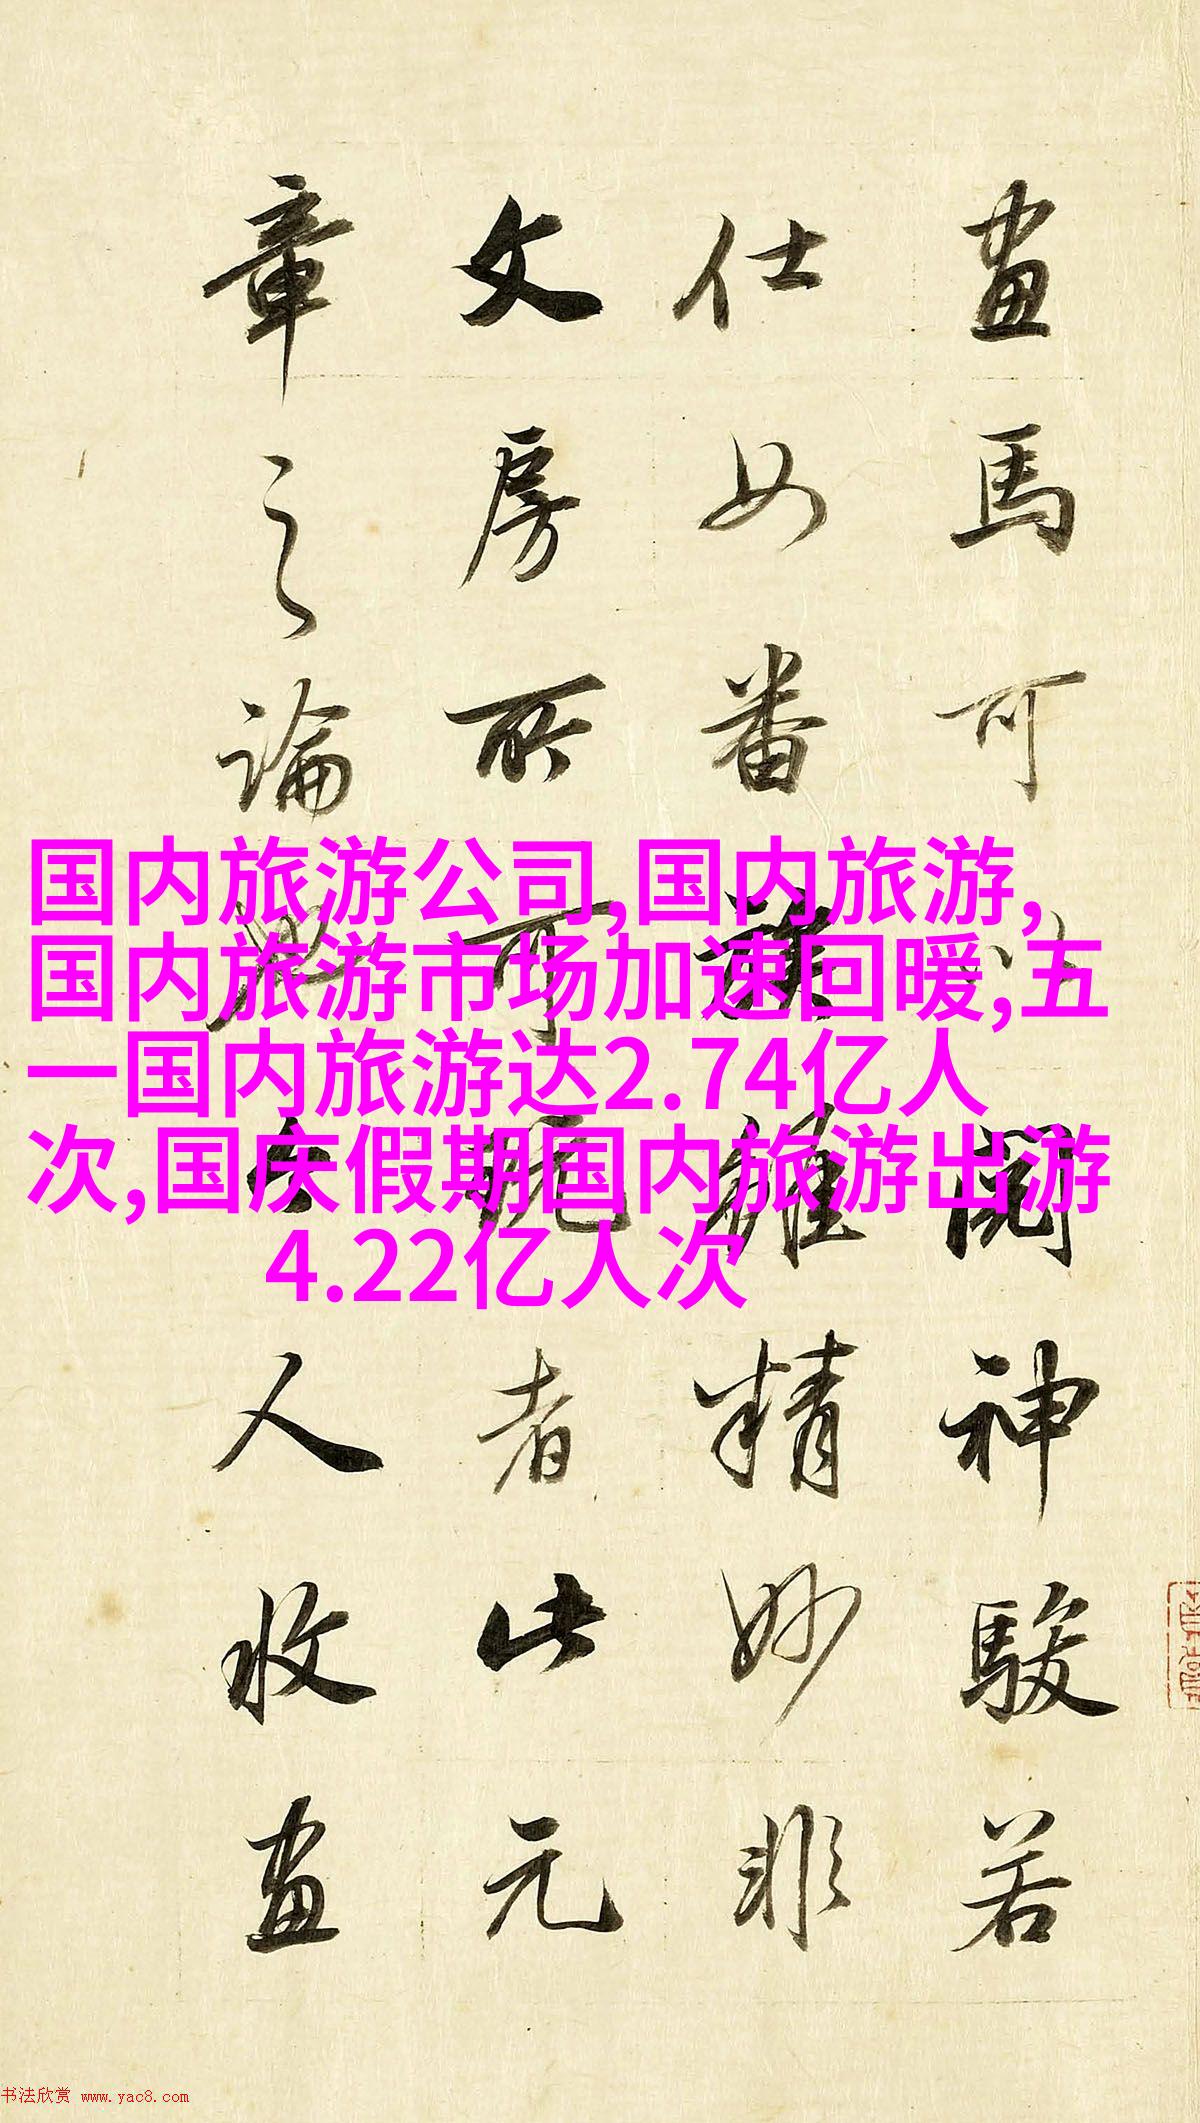 畫馬可以閱神駿若
仕女番族雖精妙非
文房所可玩者此元
章之論與今人收畫
国内旅游公司,国内旅游,
国内旅游市场加速回暖,五
一国内旅游达2.74亿人
次,国庆假期国内旅游出游
4.22亿人次
书法欣赏 www.yac8.com